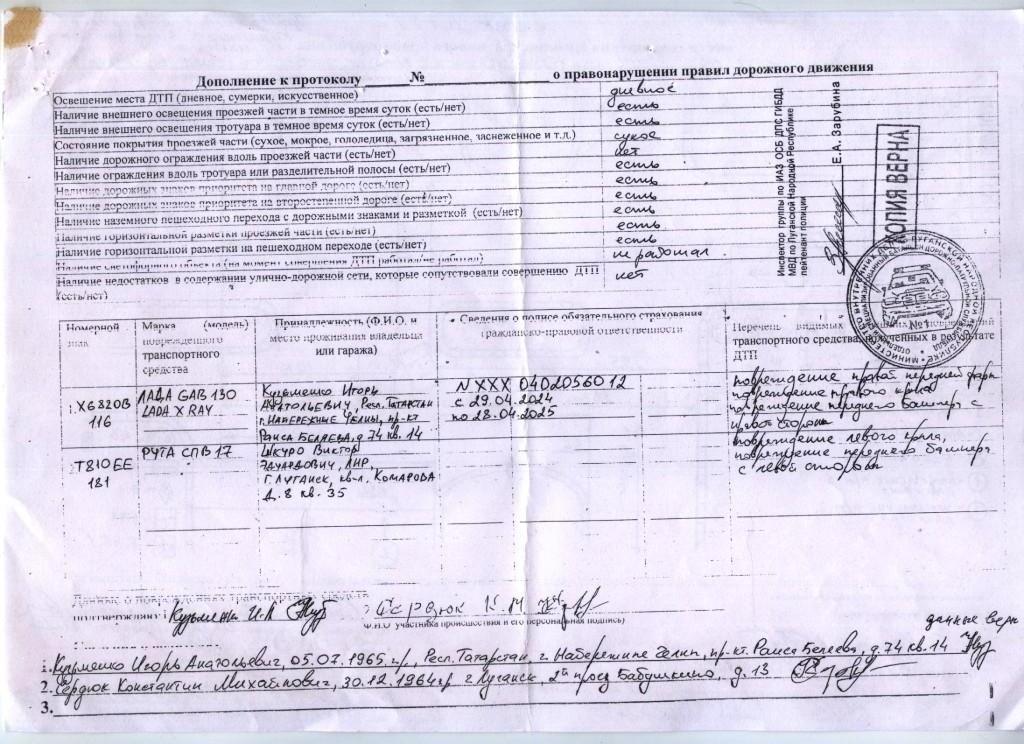 Дополнение к протоколу ______ № ______________ о правонарушении правил дорожного движения
Освещение места ДТП (дневное, сумерки, искусственное) дневное
Наличие внешнего освещения проезжей части в темное время суток (есть/нет) есть
Наличие внешнего освещения тротуара в темное время суток (есть/нет) есть
Состояние покрытия проезжей части (сухое, мокрое, гололедица, загрязненное, заснеженное и т.д.) сухое
Наличие дорожного ограждения вдоль проезжей части (есть/нет) нет
Наличие ограждения вдоль тротуара или разделительной полосы (есть/нет) есть
Наличие дорожных знаков приоритета на главной дороге (есть/нет) есть
Наличие дорожных знаков приоритета на второстепенной дороге (есть/нет) есть
Наличие наземного пешеходного перехода с дорожными знаками и разметкой (есть/нет) есть
Наличие горизонтальной разметки проезжей части (есть/нет) есть
Наличие горизонтальной разметки на пешеходном переходе (есть/нет) есть
Наличие светофорного объекта (на момент совершения ДТП работал/не работал) не работал
Наличие недостатков в содержании улично-дорожной сети, которые сопутствовали совершению ДТП нет
(есть/нет)
Инспектор группы по ИАЗ ОСБ ДПС ГИБДД
МВД по Луганской Народной Республике
лейтенант полиции
Е.А. Зарубина
КОПИЯ ВЕРНА
№ 1
Номерной знак
Марка (модель) поврежденного транспортного средства
Принадлежность (Ф.И.О. и место проживания владельца или гаража)
Сведения о полисе обязательного страхования гражданско-правовой ответственности
Перечень видимых транспортного средства, полученных в результате ДТП
Х6820В
116
ЛАДА GAB 130
LADA X RAY
Кузьменко Игорь
Анатольевич, Респ. Татарстан
г. Набережные Челны, пр-кт
Раиса Беляева, д 74 кв. 14
N XXX 0402056012
с 29.04.2024
по 28.04.2025
повреждение правой передней фары
повреждение правого крыла
повреждение переднего бампера с
правой стороны
Т810ЕЕ
181
РУТА СПВ 17
Шкуро Виктор
Эдуардович, ЛНР,
г. Луганск, кв-л. Комарова
д. 8 кв. 35
повреждение левого крыла,
повреждение переднего бампера
с левой стороны
Данные о повреждениях транспортного средств
подтверждаю Кузьменко И.А Сердюк К.М
Ф.И.О участника происшествия и его персональная подпись)
данные верны
1. Кузьменко Игорь Анатольевич, 05.07.1965 г/р, Респ. Татарстан, г. Набережные Челны, пр-кт. Раиса Беляева, д. 74 кв. 14
2. Сердюк Константин Михайлович, 30.12.1964г.р г. Луганск, 2й проезд Бабушкина, д. 13
3.